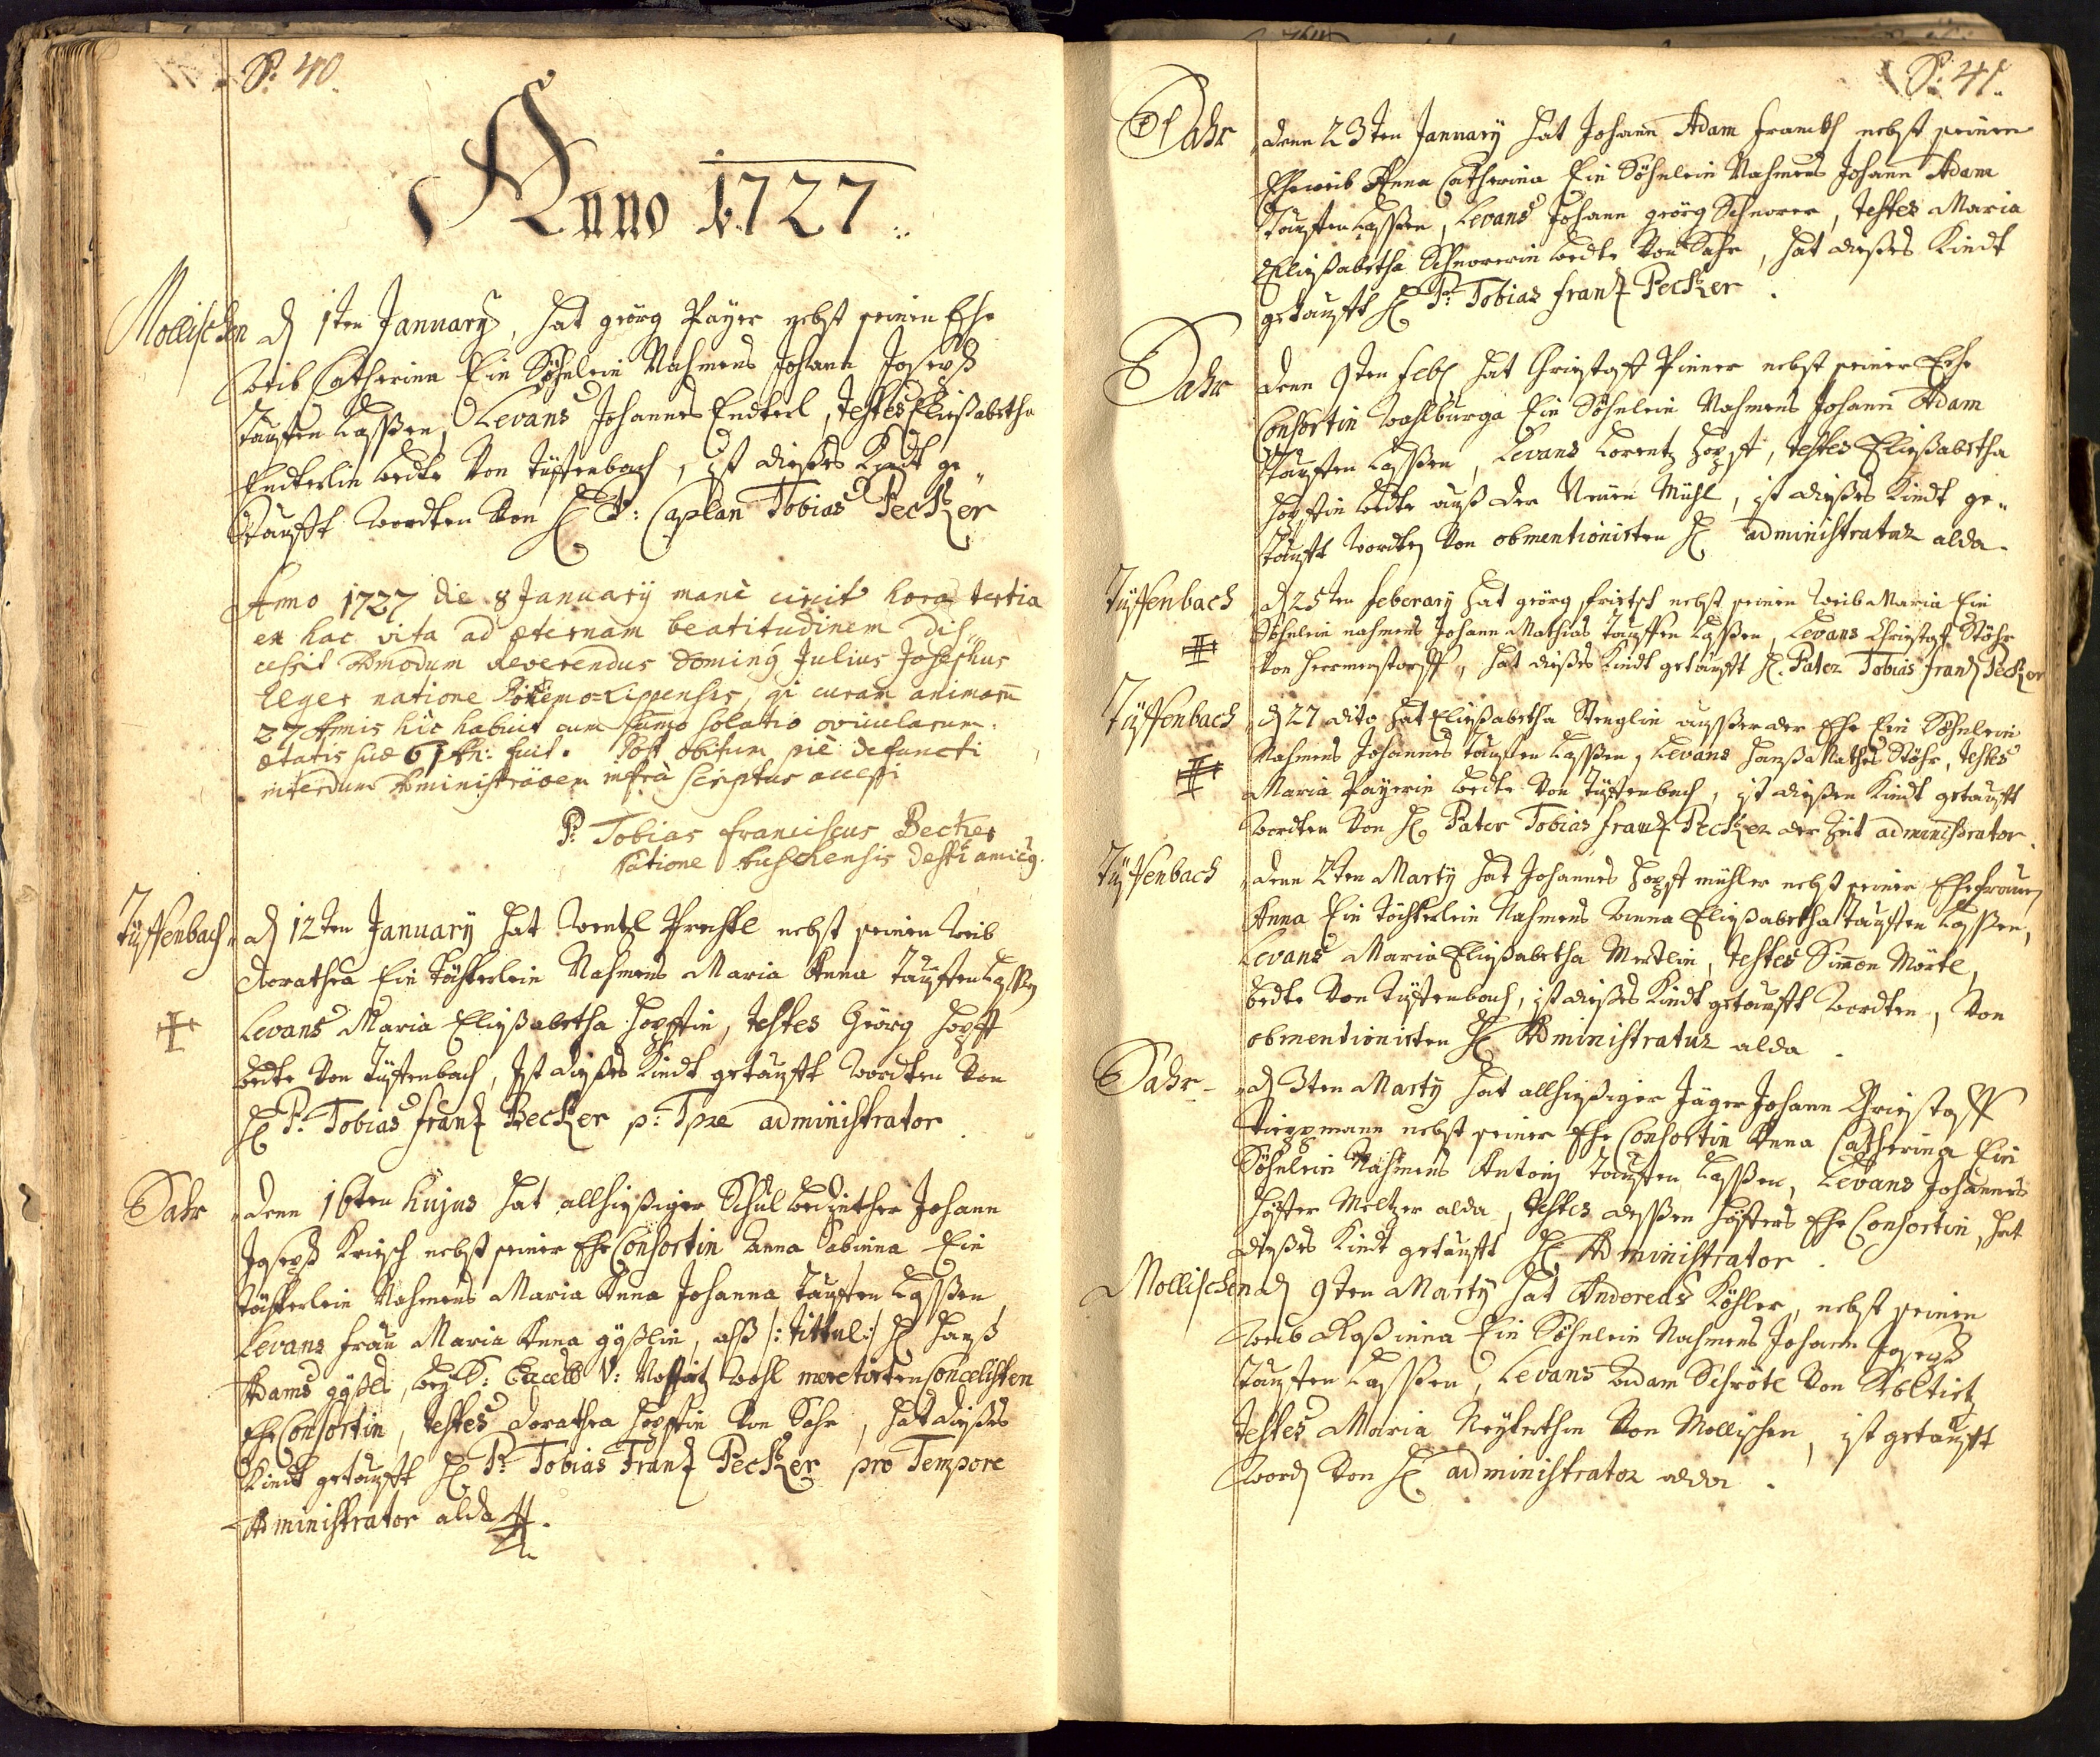 P: 40.
Anno 1727
Mollischen d 1ten January, hat georg Payer nebst seinen Ehe
weib Catherina Ein Söhnlein Nahmens Johann Joseph
tauffen lassßen, Levans Johannes Endterl, testes Eliesßabetha
Endterlin beede von Tüffenbach, ist diesßes Kindt ge„
taufft wordten von H P: Caplan Tobias Pecker
Anno 1727 die 8 January mane circit hora tertia
ex hac vita ad æternam beatitudinem dis„
cessit Admodum Reverendus Doming Julius Josephus
Eeger natione qi curam animarū
27 Annis hic habuit cum sumo solatio ovicularum.
ætatis suæ 61 An: fuit. Post obitum piè defuncti
interdum Administraōem infrà scriptus accessi
P: Tobias Franciscus Becker
Natione Tuschensis
Tüffenbach„ d 12ten January hat Wentzl Prechtl nebst seinen weib
Dorathea Ein Töchterlein Nahmens Maria Anna tauffen lasßen
Levans Maria Eliesßabetha Hopffin, testes Georg Hopff
beede von Tüffenbach, Ist diesßes Kindt getaufft wordten von
H P: Tobias Frantz Becker p: Tpre administrator
Sahr denn 16ten hujus hat allhiesßiger Schul bedinther Johann
Joseph Kriesch nebst seiner Ehe Consortin Anna Sabinna Ein
töchterlein Nahmens Maria Anna Johanna tauffen lasßen
Levans frau Maria Anna gößlin, alß /: tittul :/ H Hanß
Adams gößls, wohl meretirten Concelisten
Ehe Consortin, testes Dorathea Hopffin von Sahr, hat diesßes
Kindt getaufft H P: Tobias Frantz Pecker pro Tempore
Administrator alda
P: 41.
Sahr denn 23ten January hat Johann Adam nebst seinen
Eheweib Anna Catherina Ein Söhnlein Nahmens Johann Adam
tauffen lasßen, Levans Johann georg Schnorer, testes Maria
Eliesßabetha Schnorerin beede von Sahr, hat diesßes Kindt
getaufft H P: Tobias Frantz Pecker.
Sahr denn 9ten Feb hat Christoff Pinner nebst seiner Ehe
Consortin Wahlburga Ein Söhnlein Nahmens Johann Adam
tauffen lasßen, Levans Lorentz Hopff, testes Eliesßabetha
Hopffin beede auß der Neuen Mühl, ist diesßes Kindt ge„
taufft wordten von obmentionirten H administratar alda
Tüffenbach d 25ten feberary hat georg Frietsch nebst seinen weib Maria Ein
Söhnlein nahmens Johann Mathias tauffen lasßen, Levans Christoff Stöhr
von Herrmerstorff, hat diesßes Kindt getaufft H. Pater Tobias Frantz Pecker
Tüffenbach d 27 dito hat Eliesßabetha Stenglin aussßer der Ehe Ein Söhnlein
Nahmens Johannes tauffen lasßen, Levans Hanß Mathes Stöhr, testes
Maria Payerin beede von Tüffenbach, ist diesßen Kindt getaufft
wordten von H Pater Tobias Frantz Pecker der Zeit administrator
Tüffenbach denn 2ten Marty hat Johannes Hopff mühler nebst seiner Ehefrauen
Anna Ein Töchterlein Nahmens Anna Eliesßabetha tauffen lasßen,
Levans Maria Eliesßabetha Mertlin, testes Simon Mörtl,
beede von Tüffenbach, ist diesßes Kindt getaufft wordten, von
obmentionirten H Administratur alda
Sahr d 3ten Marty hat allhiesßiger Jäger Johann Christoff
Tieppmann nebst seiner Ehe Consortin Anna Catherina Ein
Söhnlein Nahmens Antoni tauffen lasßen, Levans Johannes
Meltzer alda, testes desßen Ehe Consortin, hat
diesßes Kindt getaufft H Administrator.
Mollischen d 9ten Marty hat Andereas Köhler, nebst seinen
weib Rosßinna Ein Söhnlein Nahmens Johann Joseph
tauffen lasßen, Levans Adam Schrötl von
testes Maria von Mollischen, ist getaufft
word von H administrator alda.